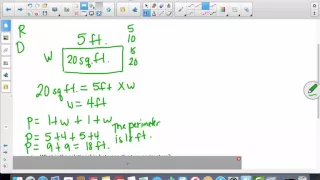 R
D
5 ft.
5
10
15
20
W
20 sq ft.
20 sq ft. = 5ft x W
W = 4ft
P = l + w + l + w
P = 5 + 4 + 5 + 4
P = 9 + 9 = 18 ft.
The perimeter
is 18 ft.